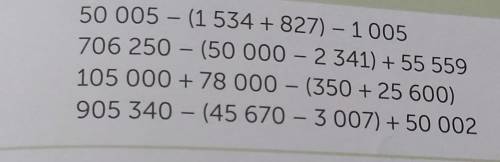 50 005 – (1 534 + 827) – 1 005
706 250 – (50 000 – 2 341) + 55 559
105 000 + 78 000 – (350 + 25 600)
905 340 – (45 670 – 3 007) + 50 002